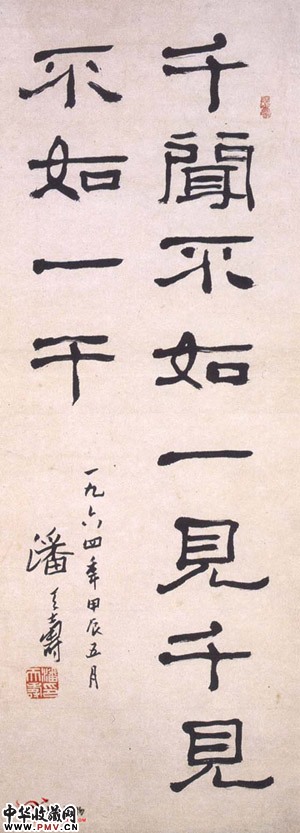 千聞不如一見千見
不如一干
一九六四年甲辰五月
潘天壽
中华收藏网
www.PMV.CN